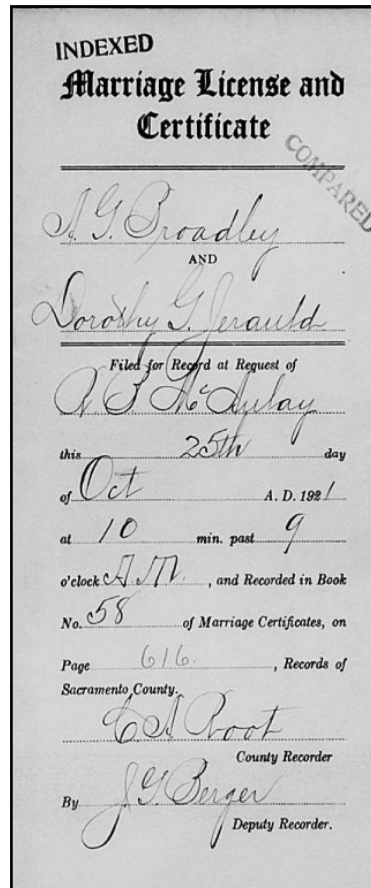 INDEXED
Marriage License and
Certificate
COMPARED
A. G. Broadley
AND
Dorothy G. Jerauld
Filed for Record at Request of
this 25th day
of Oct A. D. 1921
at 10 min. past 9
o'clock A.M. , and Recorded in Book
No. 58 of Marriage Certificates, on
Page 616. , Records of
Sacramento County.
C A Root
County Recorder
By J. G. Berger
Deputy Recorder.